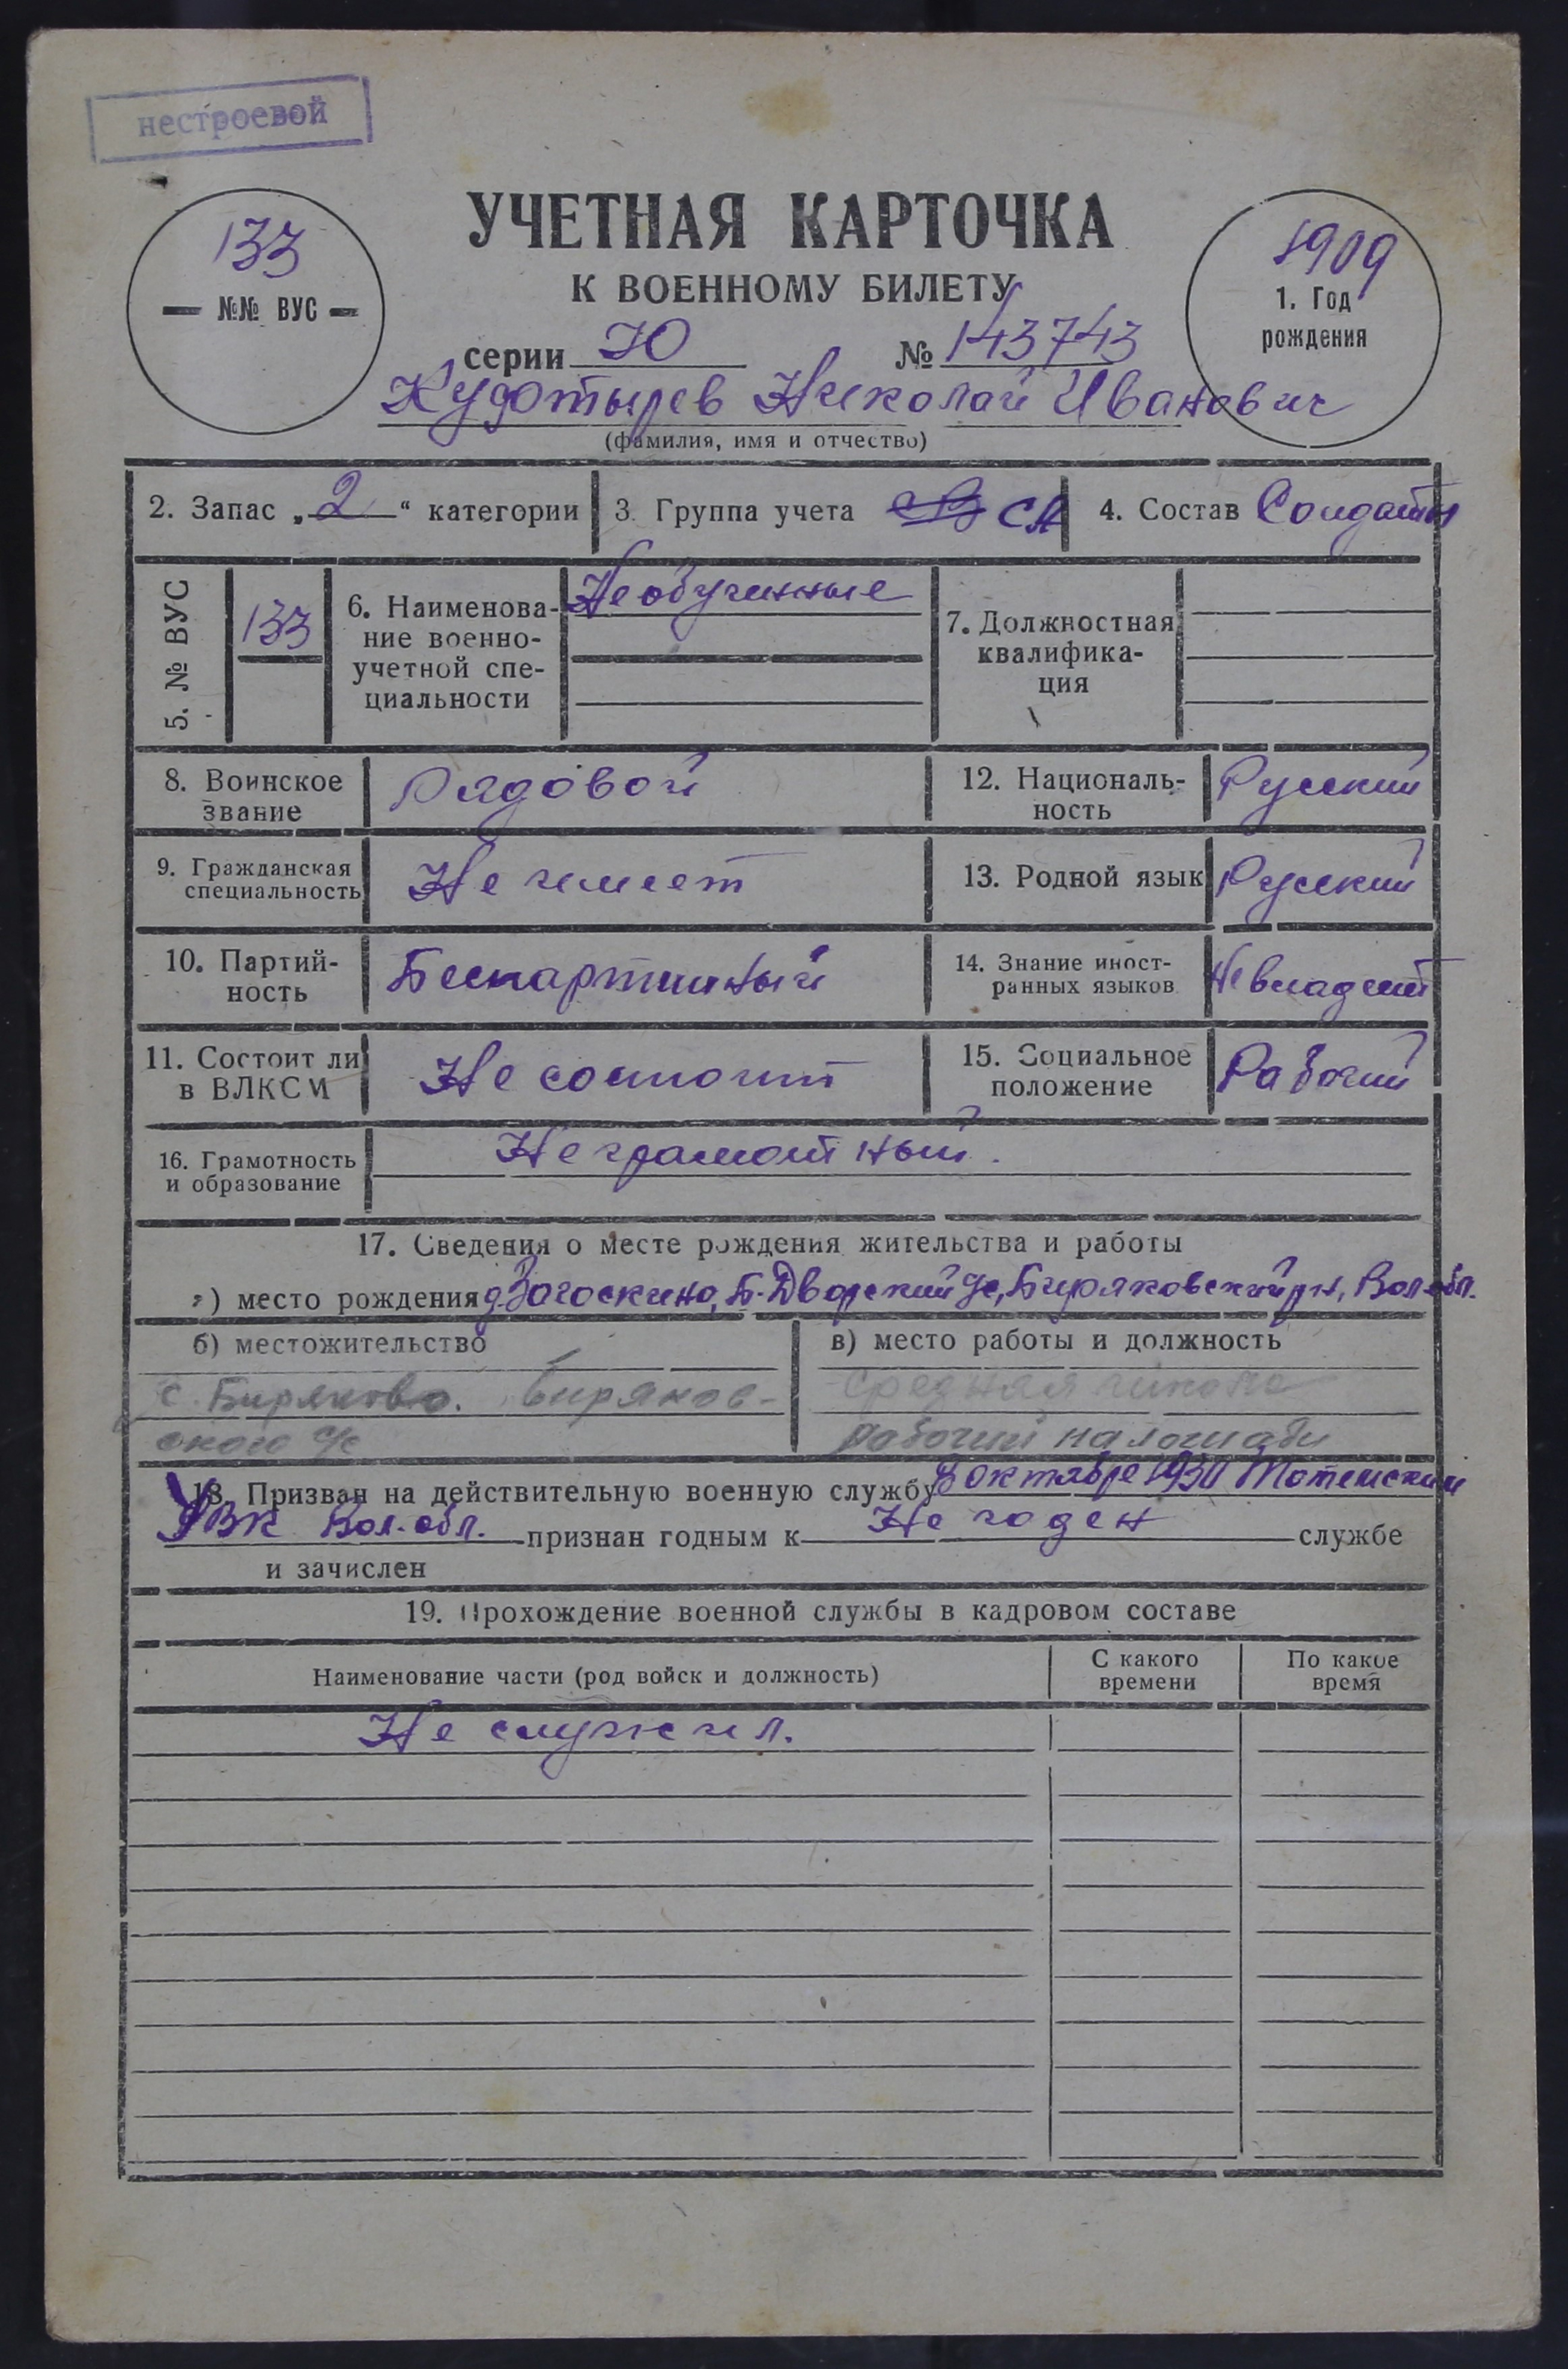 нестроевой
УЧЕТНАЯ КАРТОЧКА
К ВОЕННОМУ БИЛЕТУ
133
— №№ ВУС —
1909
1. Год
рождения
серии Ю № 143743
Николай Иванович
(фамилия, имя и отчество)
2. Запас „2“ категории 3. Группа учета СА 4. Состав Солдаты
5. № ВУС 133
6. Наименова-
ние военно-
учетной спе-
циальности
Необученные
7. Должностная
квалифика-
ция
8. Воинское
звание
Рядовой
12. Националь-
ность
Русский
9. Гражданская
специальность
Не имеет
13. Родной язык Русский
10. Партий-
ность
Беспартийный
14. Знание иност-
ранных языков
Не владеет
11. Состоит ли
в ВЛКСМ
Не состоит
15. Социальное
положение
Рабочий
16. Грамотность
и образование
Неграмотный.
17. Сведения о месте рождения жительства и работы
а) место рождения д. Загоскино, Б-Дворский с/с, Биряковский р-н, Вол обл.
б) местожительство
с. Биряково. Биряков-
ского с/с
в) место работы и должность
средняя школа
рабочий на лошади
18. Призван на действительную военную службу В октябре 1931 Тотемским
РВК Вол. обл. признан годным к Не годен службе
и зачислен
19. Прохождение военной службы в кадровом составе
Наименование части (род войск и должность)
С какого
времени
По какое
время
Не служил.